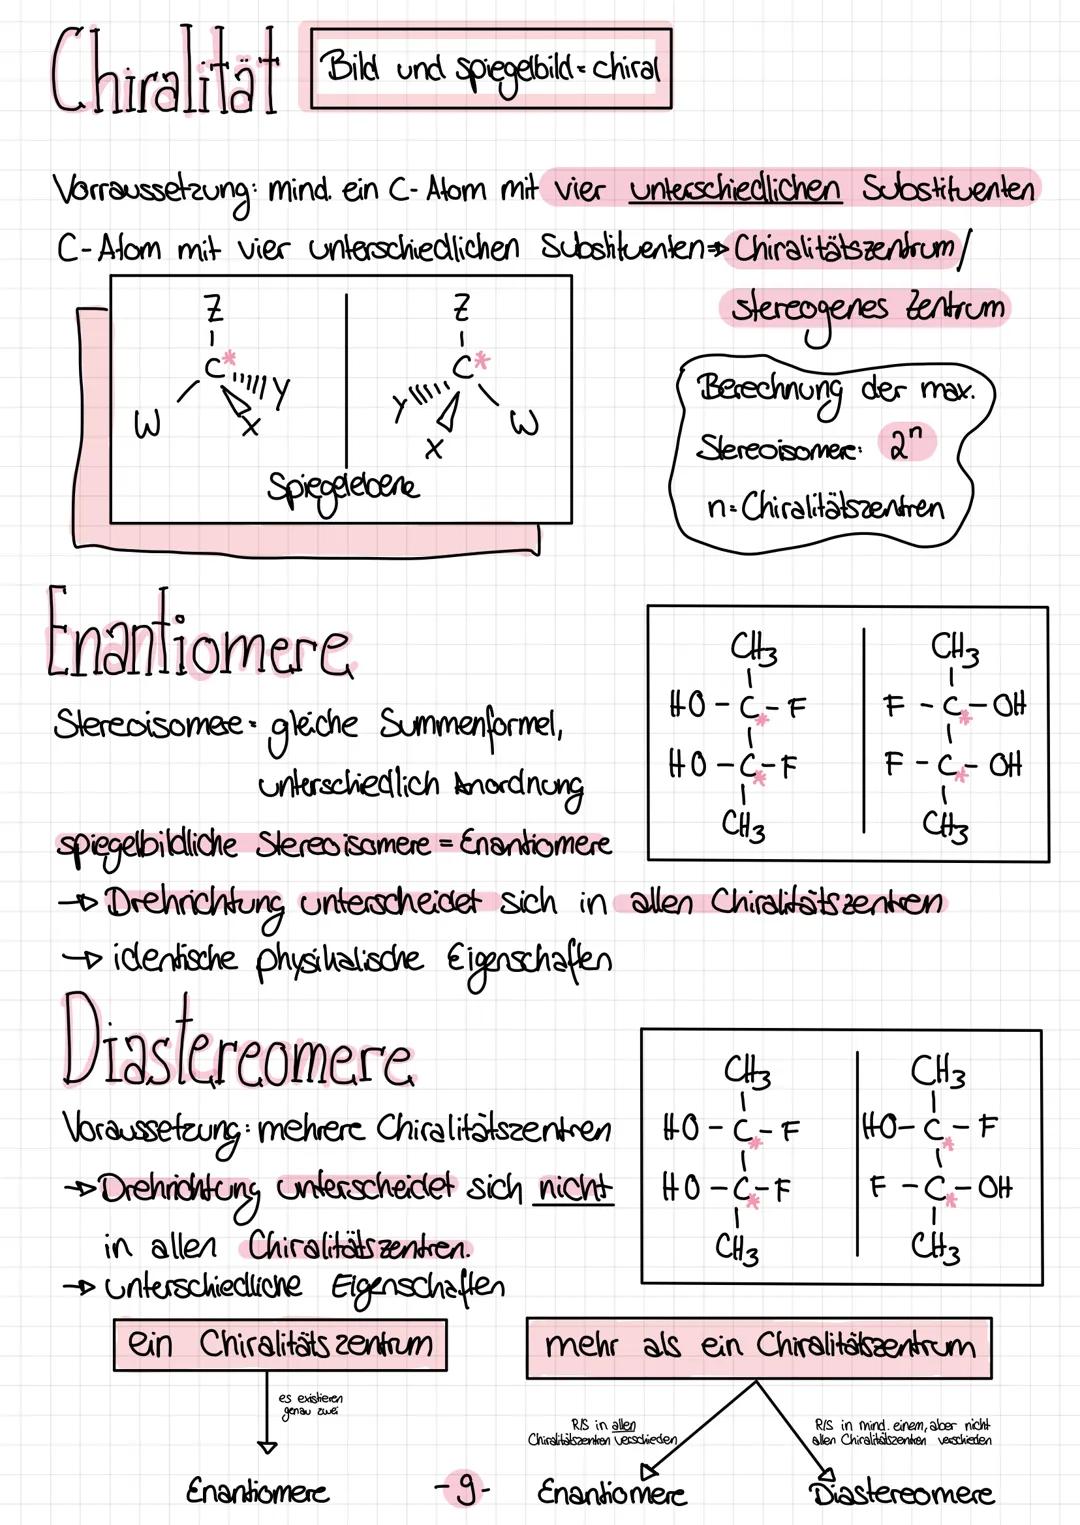 Chiralität
Bild und Spiegelbild = chiral
Vorraussetzung: mind. ein C-Atom mit vier unterschiedlichen Substituenten
C-Atom mit vier unterschiedlichen Substituenten ⇒ Chiralitätszentrum/
stereogenes Zentrum
Z
C*
W
X
Y
Z
C*
Y
X
W
Spiegelebene
Berechnung der max.
Stereoisomere: 2ⁿ
n = Chiralitätszentren
Enantiomere
Stereoisomere = gleiche Summenformel,
unterschiedlich Anordnung
spiegelbildliche Stereoisomere = Enantiomere
→ Drehrichtung unterscheidet sich in allen Chiralitätszentren
→ identische physikalische Eigenschaften
CH3
HO - C* - F
HO - C* - F
CH3
CH3
F - C* - OH
F - C* - OH
CH3
Diastereomere
Voraussetzung: mehrere Chiralitätszentren
→ Drehrichtung unterscheidet sich nicht
in allen Chiralitätszentren.
→ unterschiedliche Eigenschaften
CH3
HO - C* - F
HO - C* - F
CH3
CH3
HO - C* - F
F - C* - OH
CH3
ein Chiralitätszentrum
es existieren
genau zwei
Enantiomere
mehr als ein Chiralitätszentrum
R/S in allen
Chiralitätszentren verschieden
R/S in mind. einem, aber nicht
allen Chiralitätszentren verschieden
Enantiomere
Diastereomere
-9-